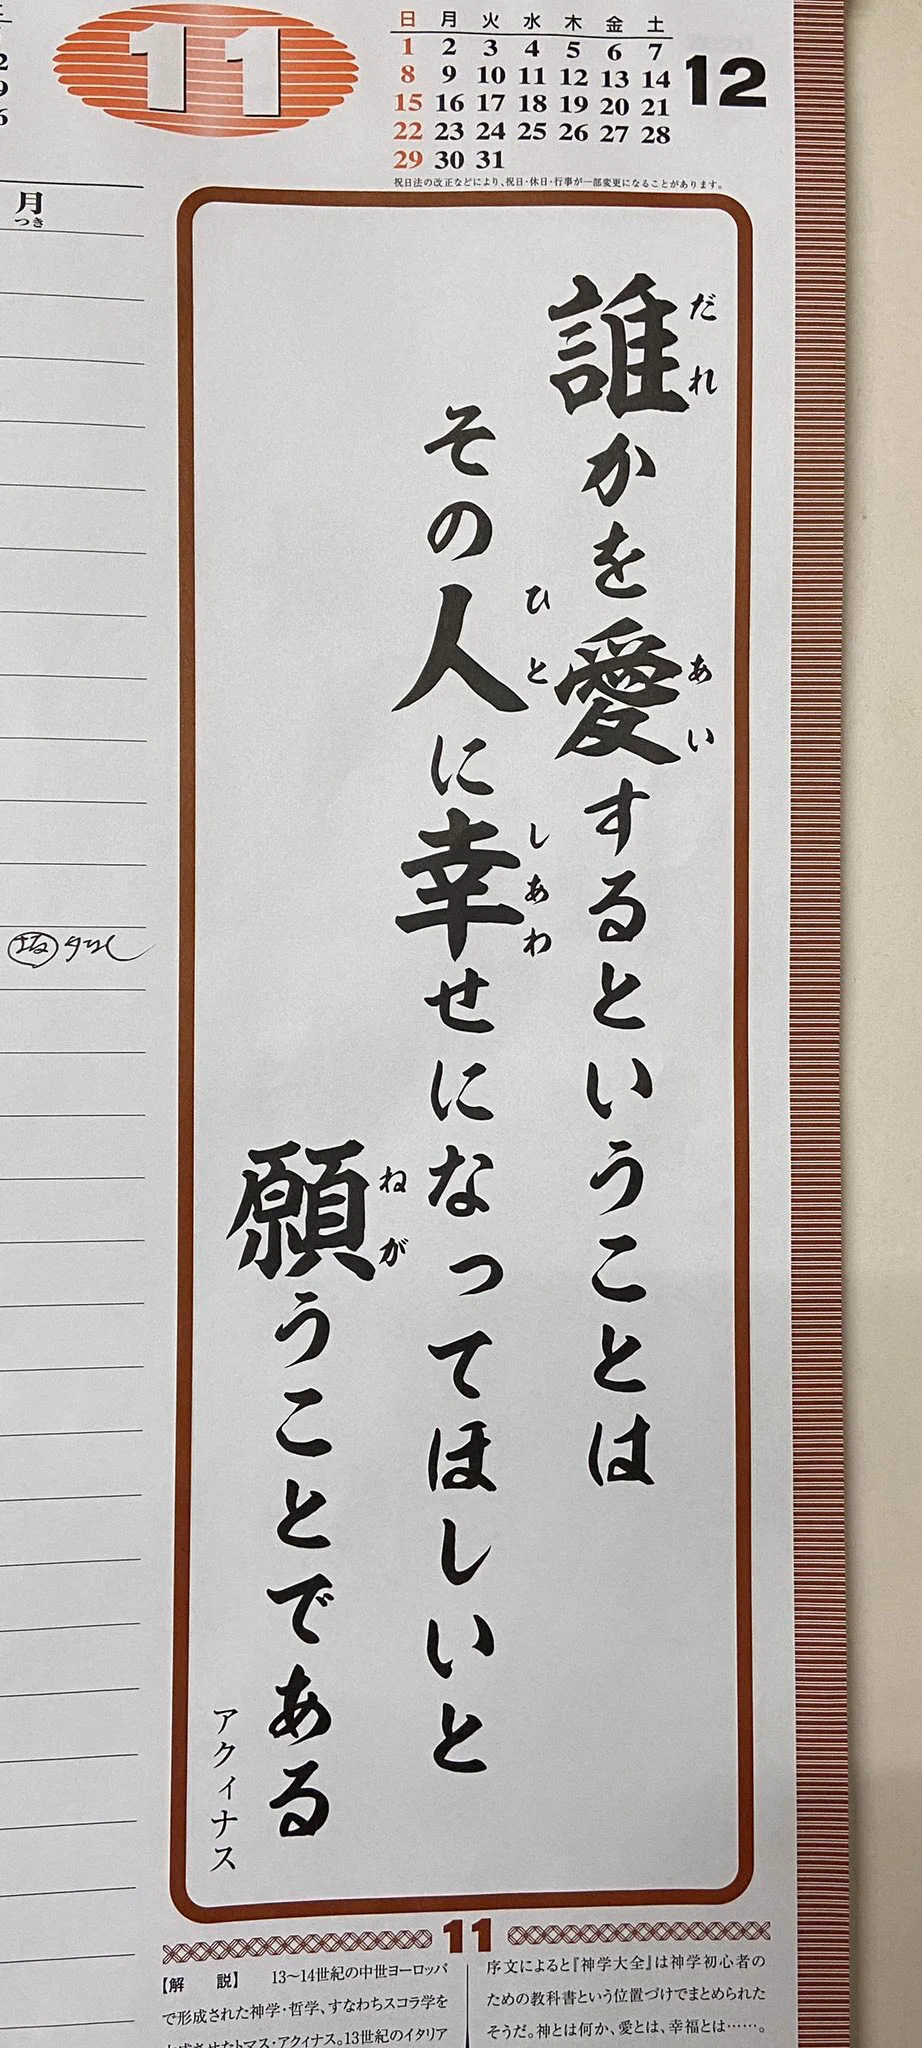 11
日 月 火 水 木 金 土
1 2 3 4 5 6 7
8 9 10 11 12 13 14
15 16 17 18 19 20 21
22 23 24 25 26 27 28
29 30 31
12
祝日法の改正などにより、祝日・休日・行事が一部変更になることがあります。
月
つき
誰かを愛するということは
だれ
あい
その人に幸せになってほしいと
ひと
しあわ
願うことである
ねが
アクィナス
11
【解 説】 13〜14世紀の中世ヨーロッパ
で形成された神学・哲学、すなわちスコラ学を
大成させたトマス・アクィナス。13世紀のイタリア
序文によると『神学大全』は神学初心者の
ための教科書という位置づけでまとめられた
そうだ。神とは何か、愛とは、幸福とは……。